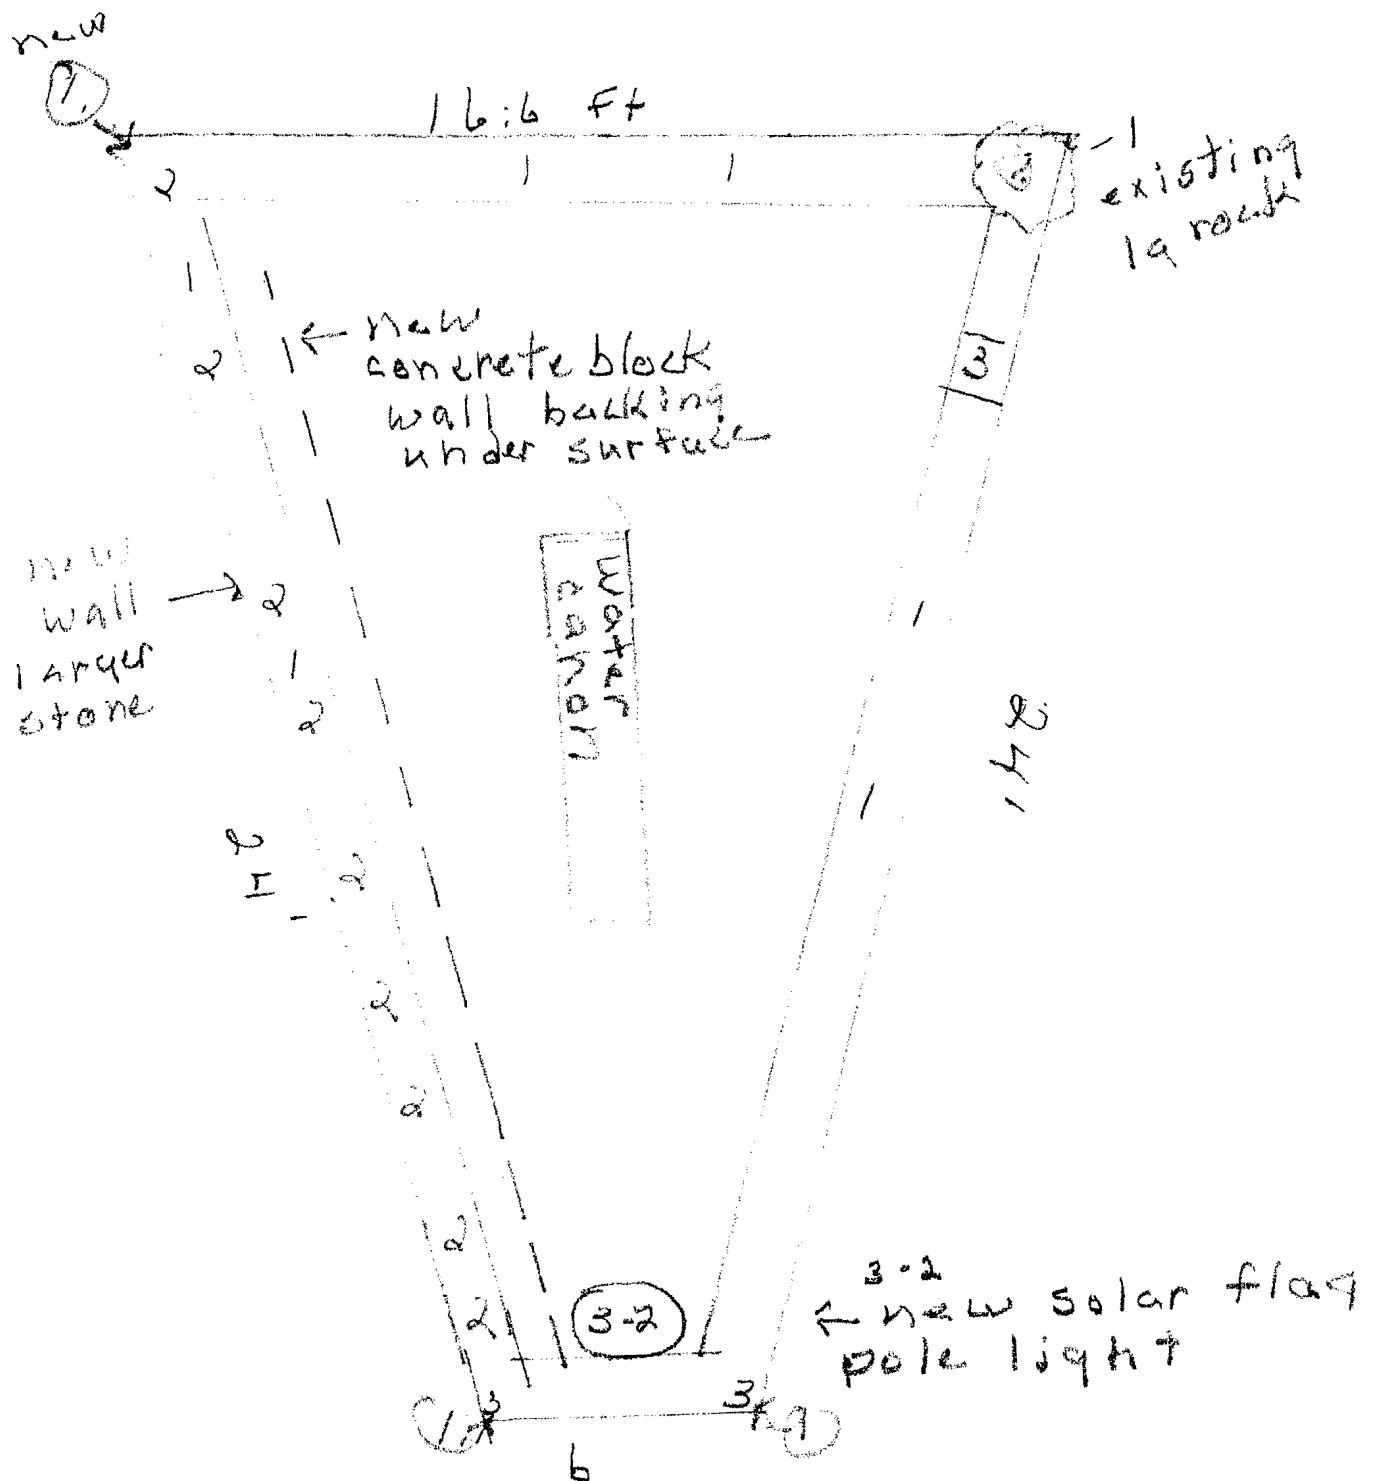 new
1.
16:6 Ft
2
1
1
- 1
existing
1a rock
1
1
2
1
← new
concrete block
wall backing
under surface
3
new
wall →
larger
stone
2
1
2
water
canon
1
24'
1
24'
2
2
2
2
2
3-2
3-2
← new solar flag
pole light
1.
3
3
9
6